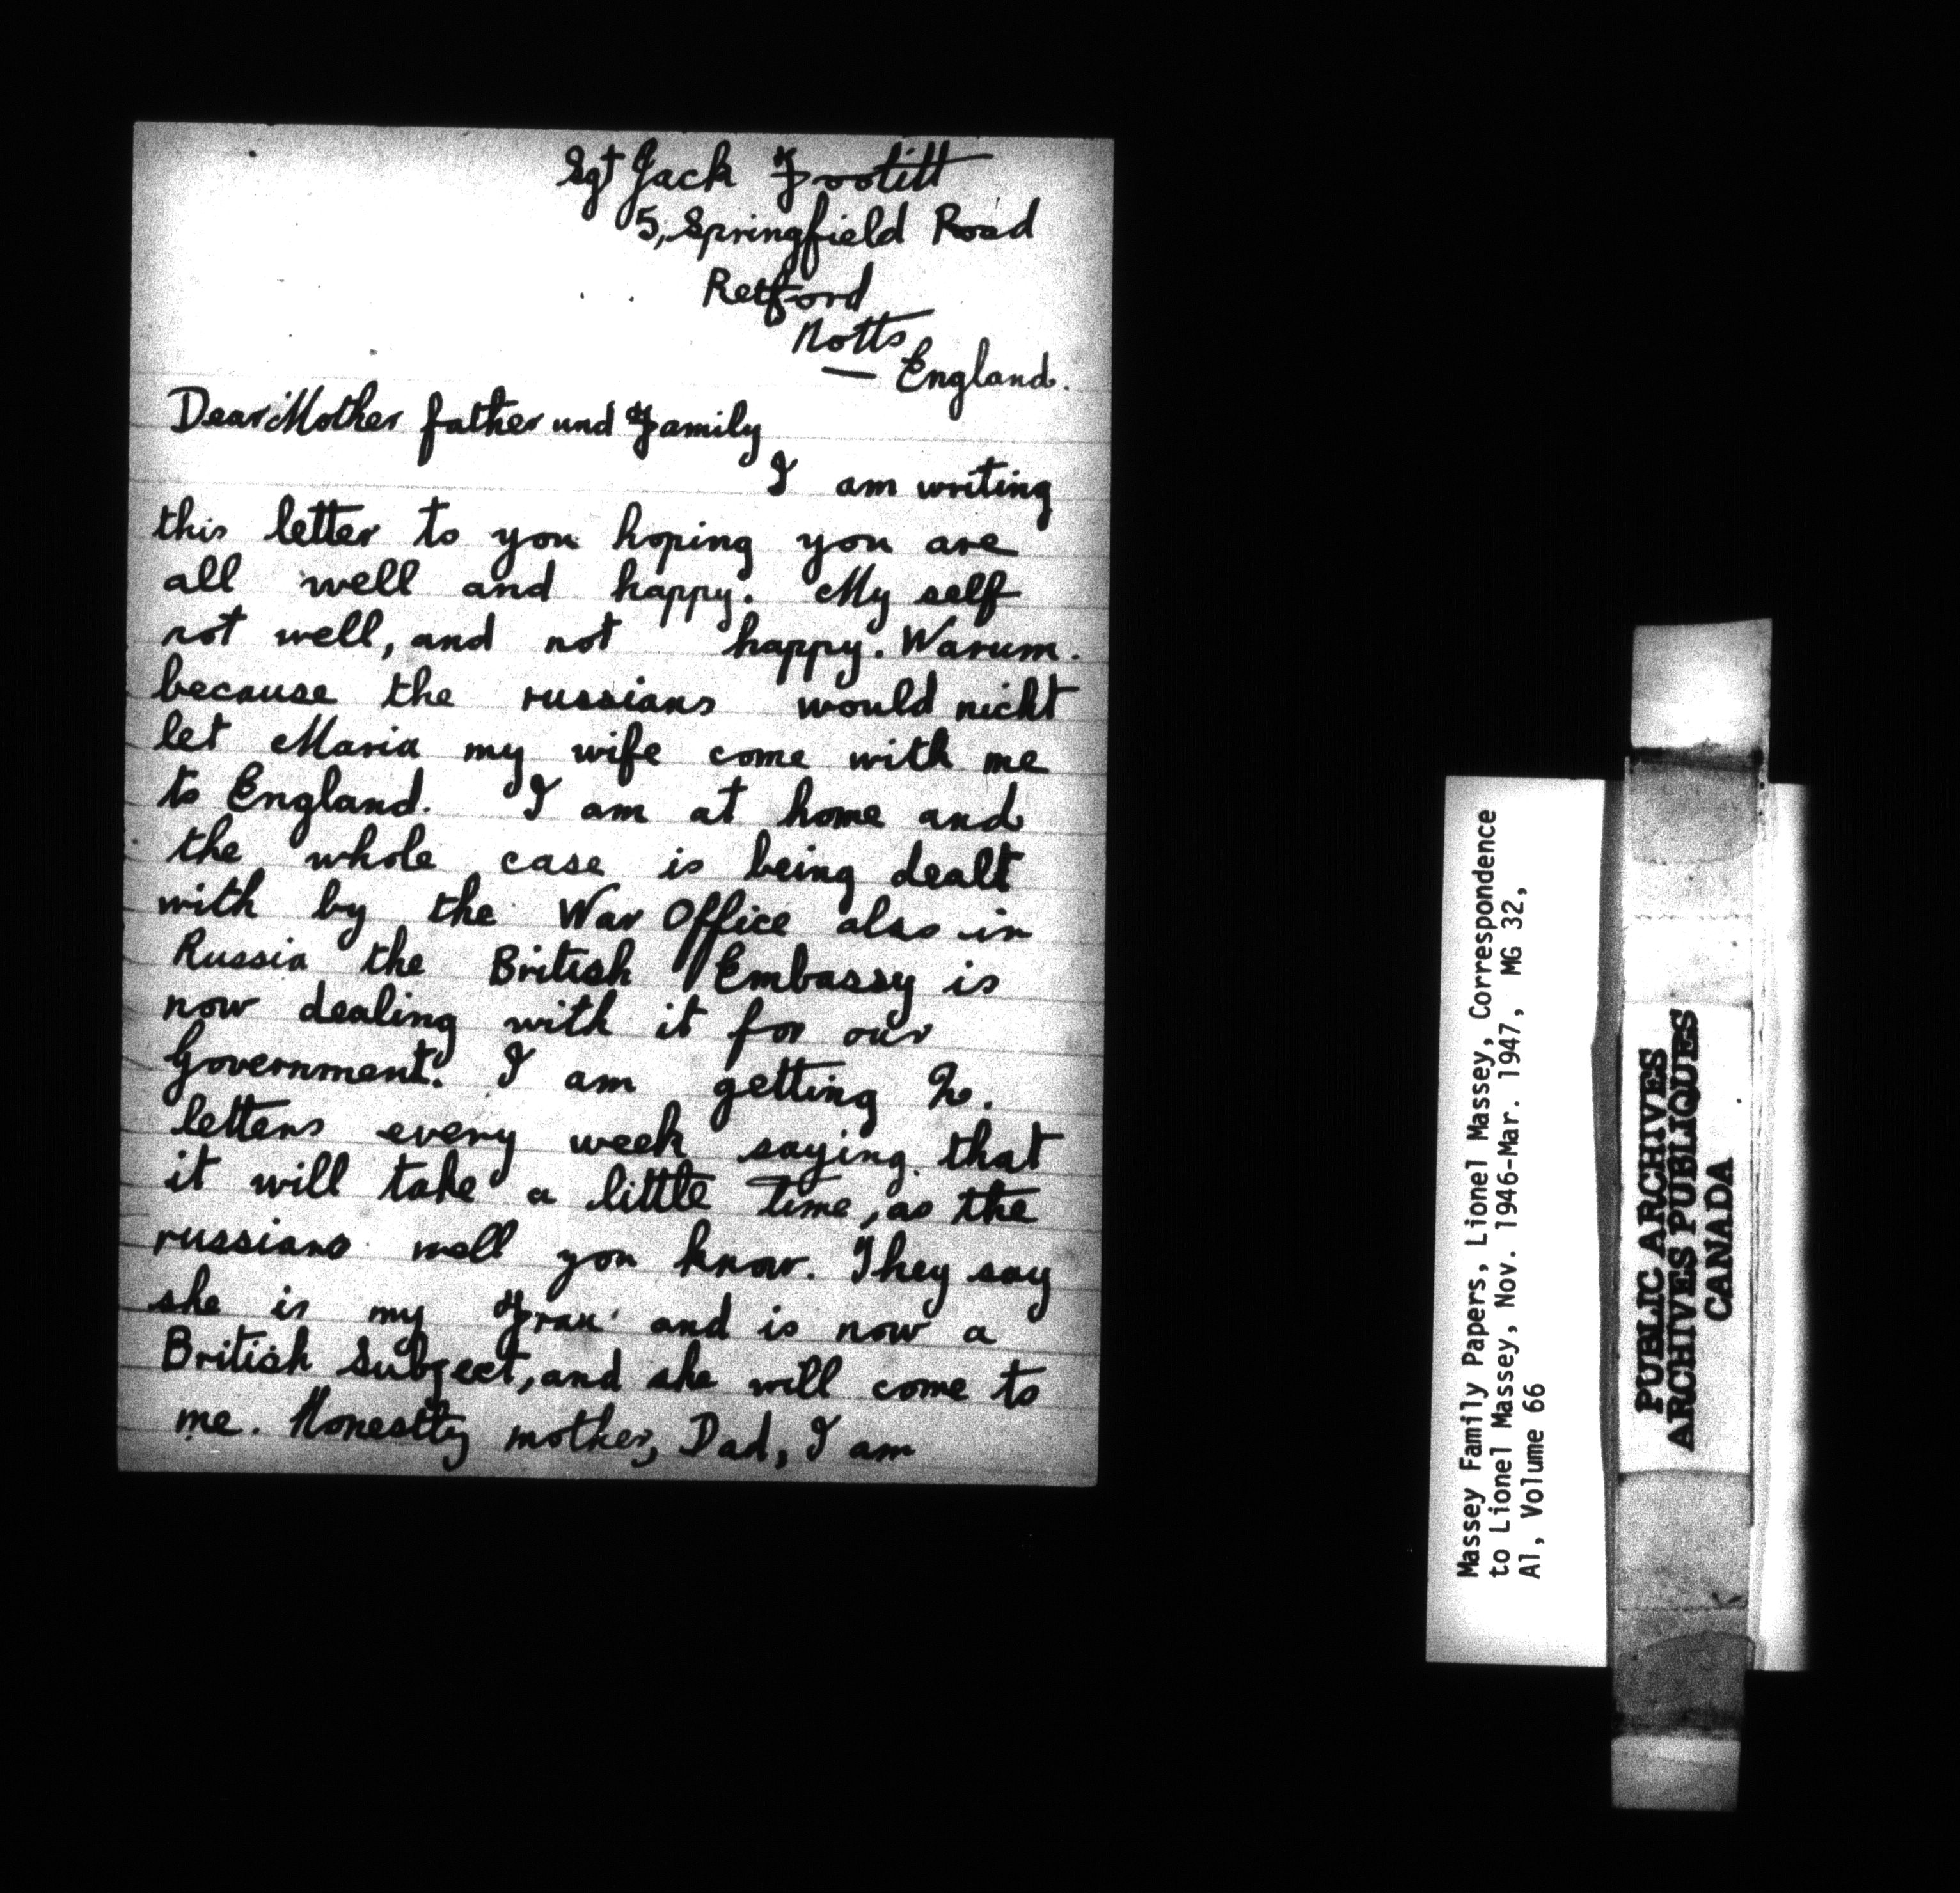 Sgt Jack Footitt
5, Springfield Road
Retford
Notts
England.
Dear Mother father und Family
I am writing
this letter to you hoping you are
all well and happy. My self
not well, and not happy. Warum.
because the russians would nicht
let Maria my wife come with me
to England. I am at home and
the whole case is being dealt
with by the War Office also in
Russia the British Embassy is
now dealing with it for our
Government. I am getting
letters every week saying that
it will take a little time, as the
russians well you know. They say
she is my Frau and is now a
British Subject, and she will come to
me. Honestty mother, Dad, I am
Massey Family Papers, Lionel Massey, Correspondence
to Lionel Massey, Nov. 1946-Mar. 1947, MG 32,
A1, Volume 66
PUBLIC ARCHIVES
ARCHIVES PUBLIQUES
CANADA